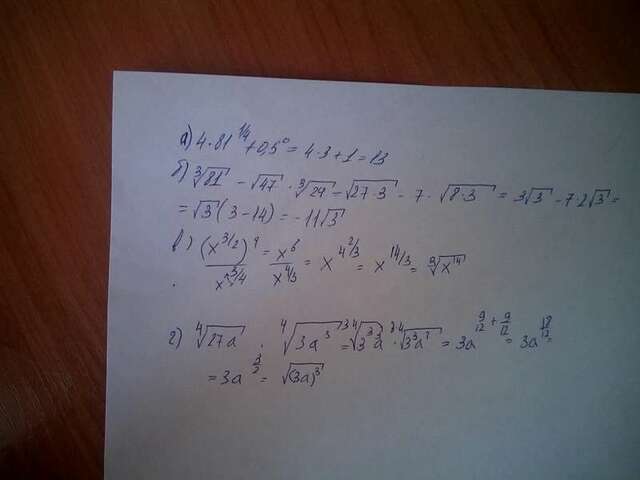 а) 4·81^1/4 + 0,5^0 = 4·3+1=13
б) ∛81 - √47 · ∛24 = √27·3 - 7 · √8·3 = 3√3 - 7·2√3 =
= √3 (3-14) = -11√3
в) (x^3/2)^4 / x^3/4 = x^6 / x^4/3 = x^4 2/3 = x^14/3 = ∛x^14
г) ∜27a · ∜3a^3 = = 3a^9/12 + 9/12 = 3a^18/12 =
= 3a^3/2 = √(3a)^3